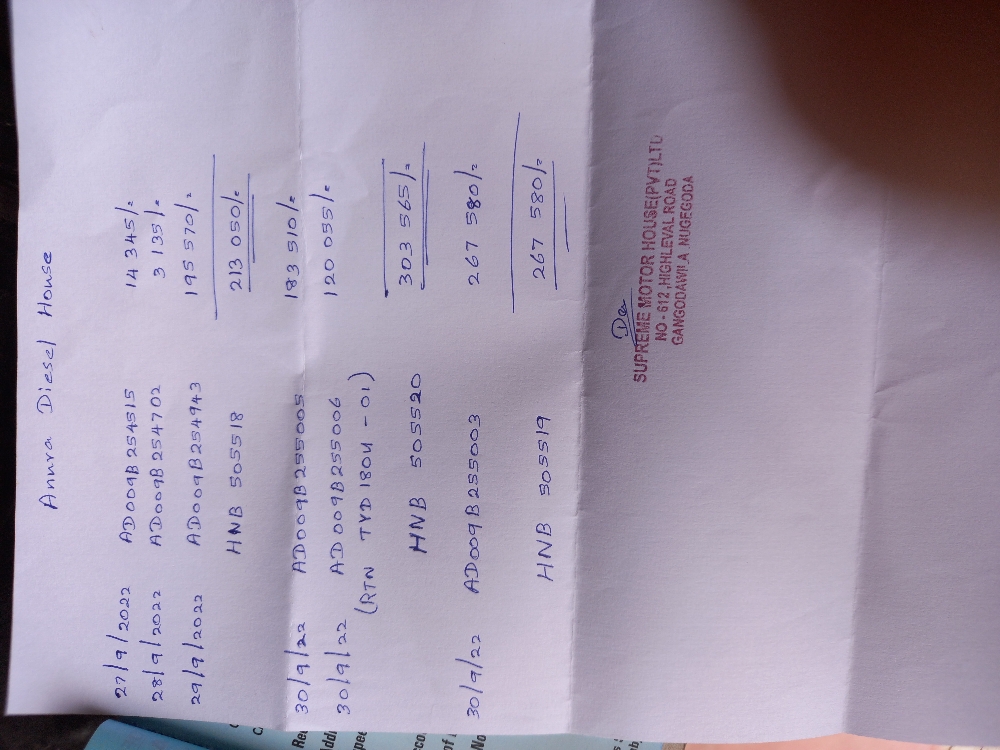 Anura Diesel House
27/9/2022 AD009B254515 14 345/=
28/9/2022 AD009B254702 3 135/=
29/9/2022 AD009B254943 195 570/=
HNB 505518 213 050/=
30/9/22 AD009B255005 183 510/=
30/9/22 AD009B255006 120 055/=
(RTN TYD 180U - 01)
HNB 505520 303 565/=
30/9/22 AD009B255003 267 580/=
HNB 505519 267 580/=
SUPREME MOTOR HOUSE(PVT)LTD
NO - 612, HIGHLEVAL ROAD
GANGODAWILA NUGEGODA